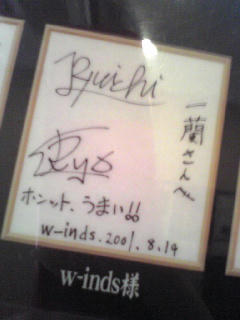 Ryuichi
一蘭さんへ
Ryo
ホンット、うまい!!
w-inds.2001.8.19
w-inds様